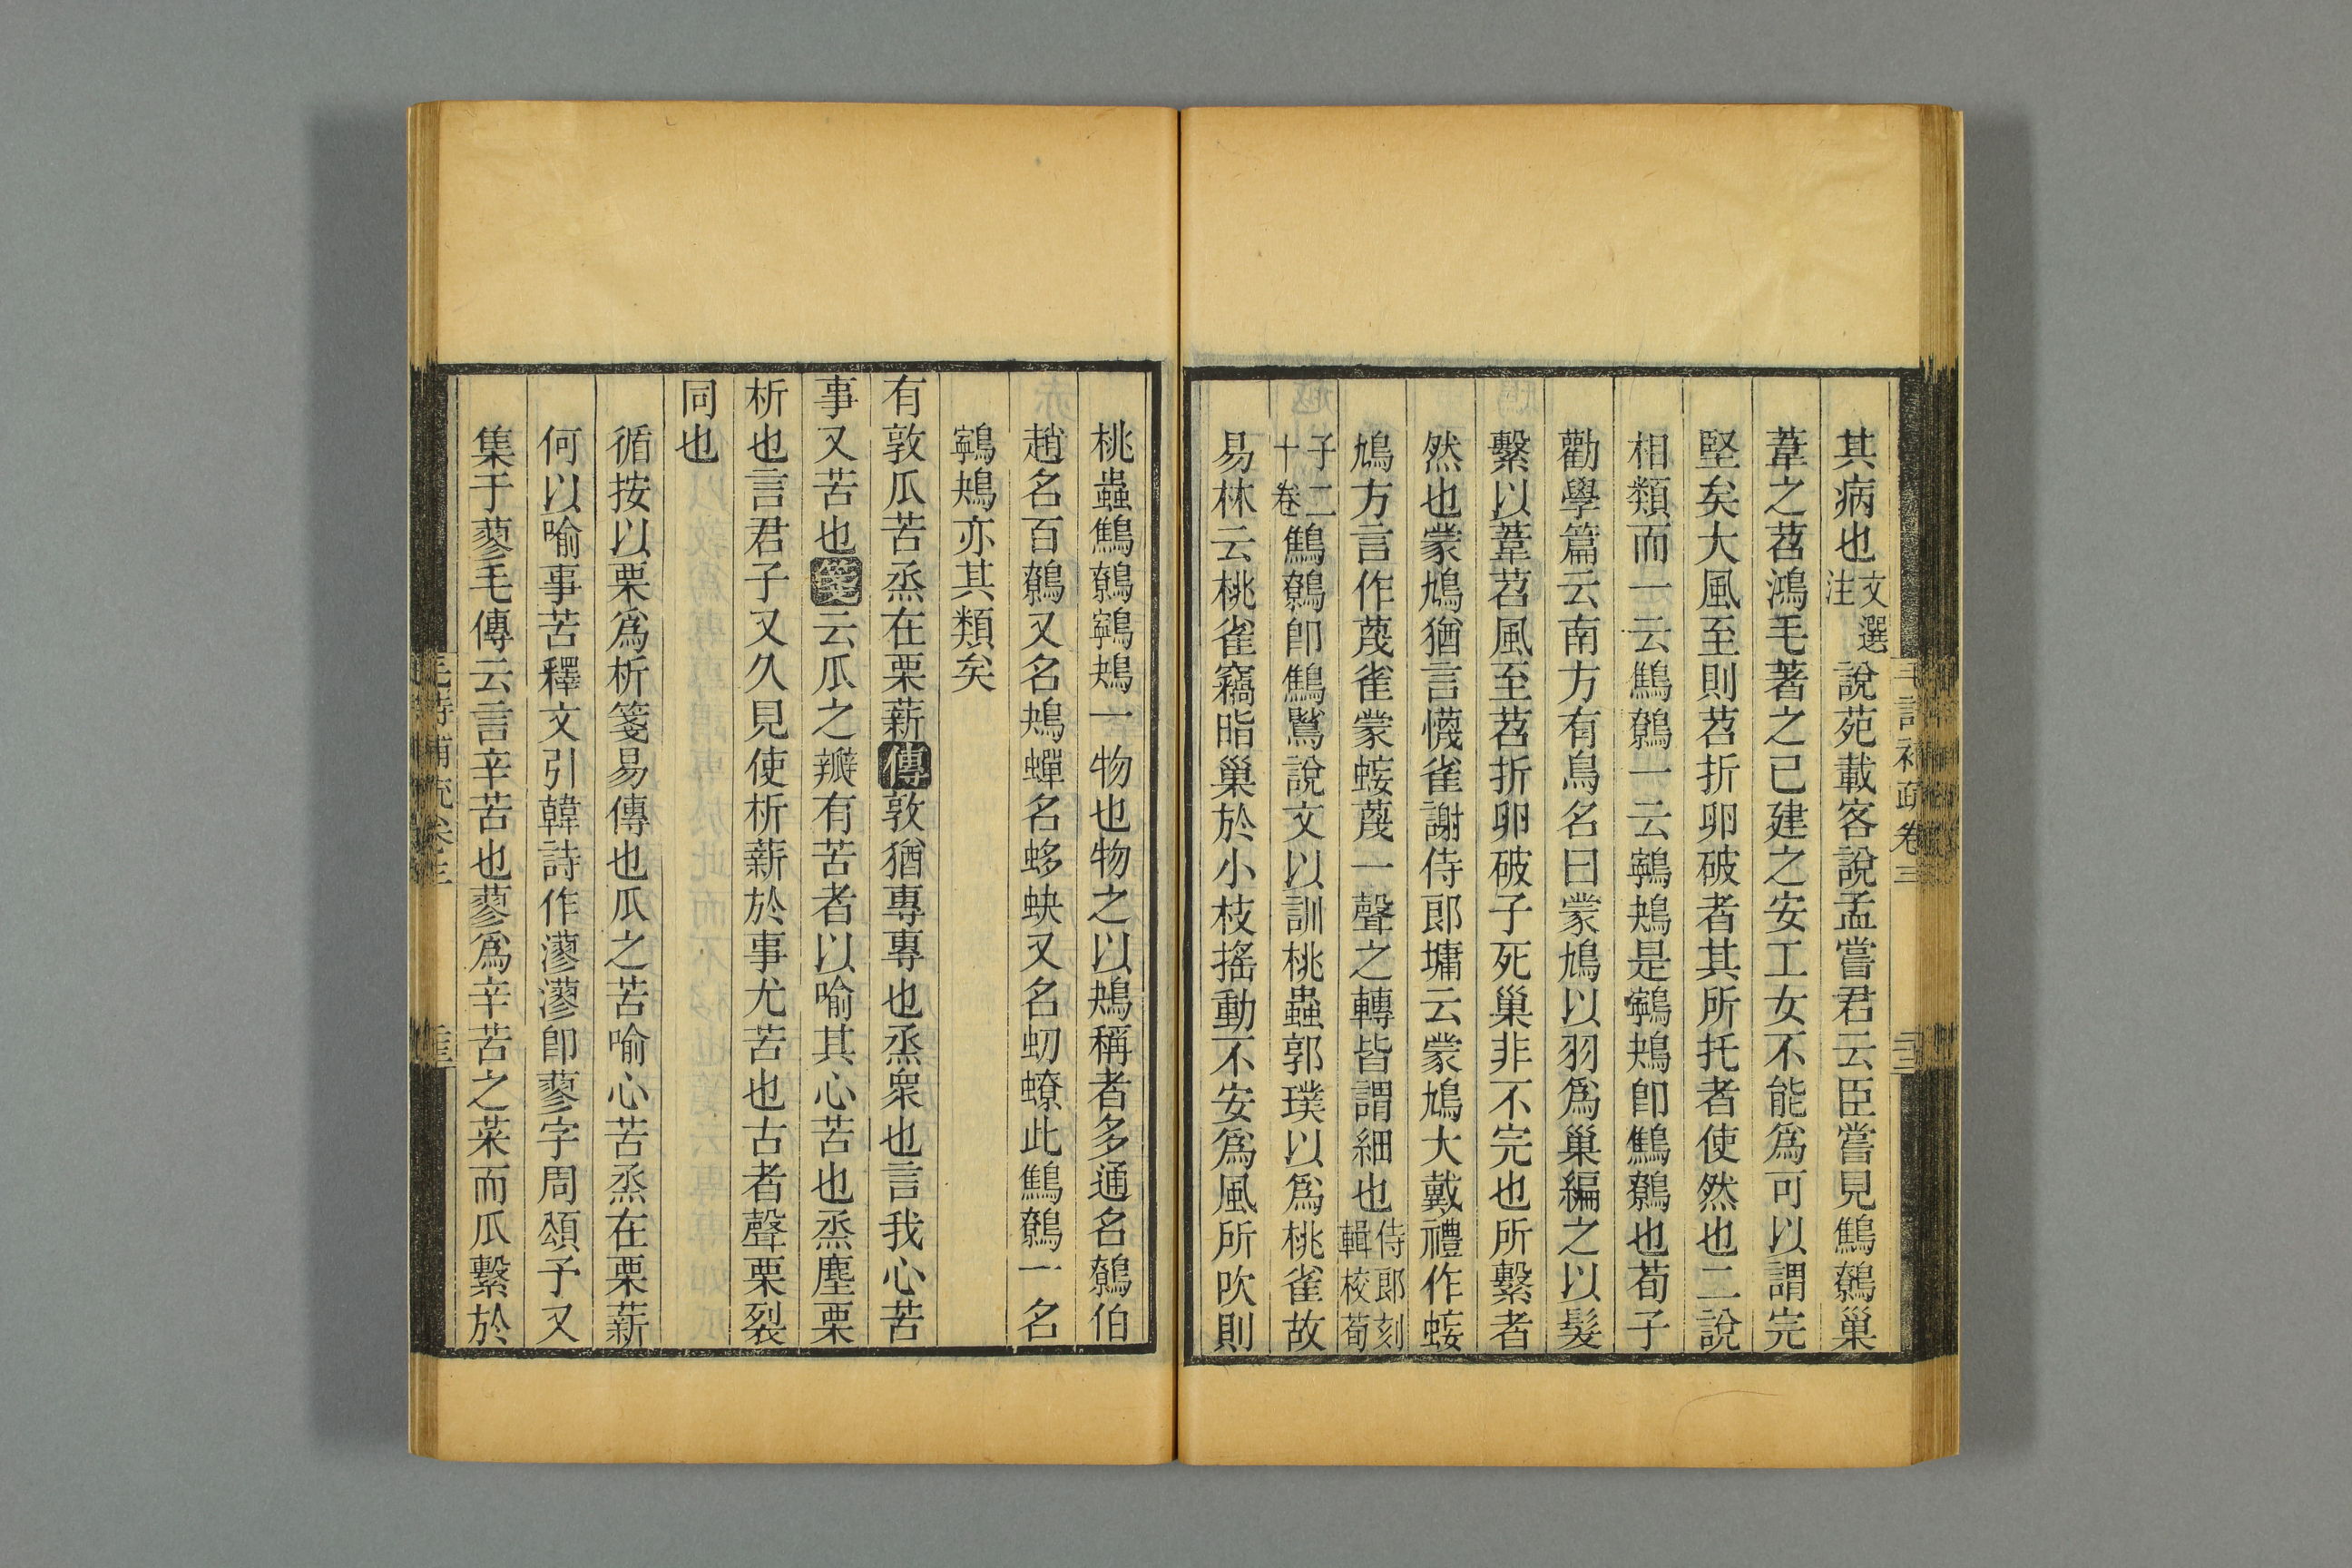 其病也文選注說苑載客說孟嘗君云臣嘗見鷦鷯巢
葦之苕鴻毛著之已建之安工女不能爲可以謂完
堅矣大風至則苕折卵破者其所托者使然也二說
相類而一云鷦鷯一云鸋鴂是鸋鴂卽鷦鷯也荀子
勸學篇云南方有鳥名曰蒙鳩以羽爲巢編之以髮
繫以葦苕風至苕折卵破子死巢非不完也所繫者
然也蒙鳩猶言懱雀謝侍郎墉云蒙鳩大戴禮作䖤
鳩方言作蔑雀蒙䖤蔑一聲之轉皆謂細也侍郎刻輯校荀
子二十卷鷦鷯卽鷦鷔說文以訓桃蟲郭璞以爲桃雀故
易林云桃雀竊脂巢於小枝搖動不安爲風所吹則
桃蟲鷦鷯鸋鴂一物也物之以鴂稱者多通名鷯伯
趙名百鷯又名鴂蟬名蛥蚗又名虭蟟此鷦鷯一名
鸋鴂亦其類矣
有敦瓜苦烝在栗薪傳敦猶專專也烝衆也言我心苦
事又苦也箋云瓜之瓣有苦者以喻其心苦也烝塵栗
析也言君子又久見使析薪於事尤苦也古者聲栗裂
同也
循按以栗爲析箋易傳也瓜之苦喻心苦烝在栗薪
何以喻事苦釋文引韓詩作蓼蓼卽蓼字周頌予又
集于蓼毛傳云言辛苦也蓼爲辛苦之菜而瓜繫於
毛詩補疏卷三